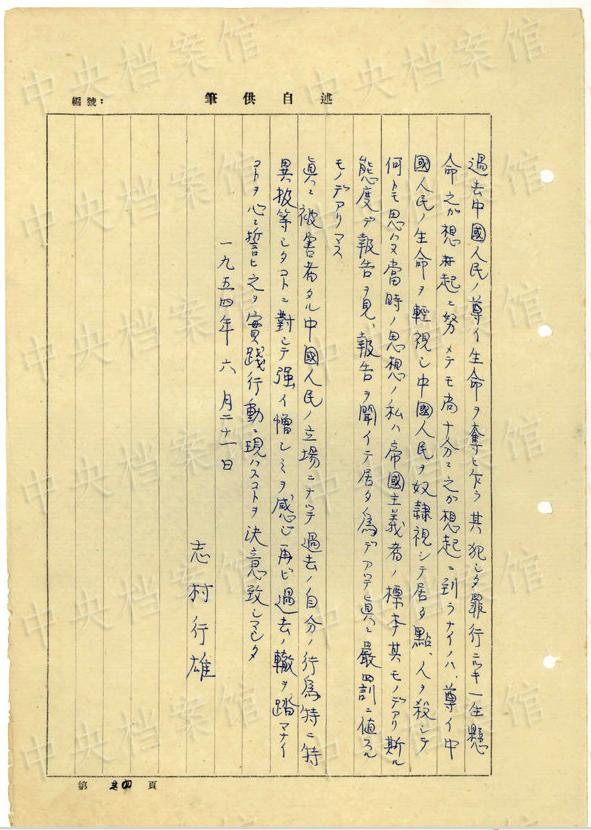 編號：
筆供自述
過去中國人民ノ尊イ生命ヲ奪ヒ乍ラ其犯シタ罪行ニツキ一生懸
命之ガ想起ニ努メテモ尚十分ニ之ガ想起ニ到ラナイノハ尊イ中
國人民ノ生命ヲ輕視シ中國人民ヲ奴隷視シテ居タ點、人ヲ殺シテ
何トモ思ハヌ當時ノ思想ノ私ハ帝國主義者ノ標本其モノデアリ斯ル
態度デ報告ヲ見、報告ヲ聞イテ居タ為デアツテ眞ニ嚴罰ニ値スル
モノデアリマス
眞ニ被害者タル中國人民ノ立場ニナツテ過去ノ自分ノ行為特ニ特
異扱等シタコトニ對シテ强イ憎シミヲ感ジ再ビ過去ノ轍ヲ踏マナイ
コトヲ心ニ誓ヒ之ヲ實踐行動ニ現ハスコトヲ決意致シマシタ
一九五四年 六月二十一日
志村行雄
第 頁
中央档案馆